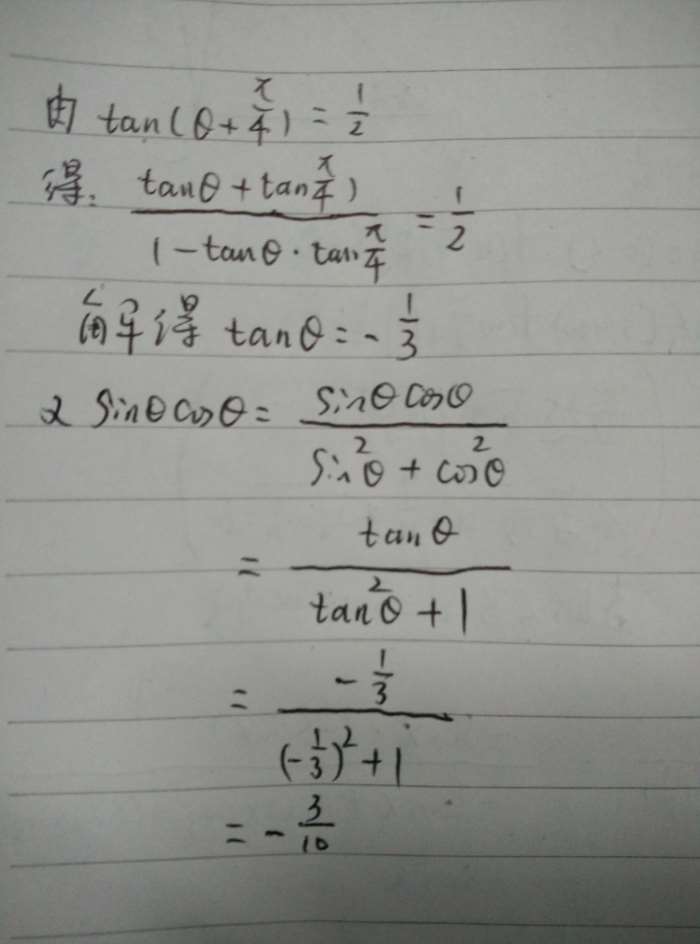 由 tan(θ+π/4)=1/2
得: (tanθ+tanπ/4))/(1-tanθ·tanπ/4)=1/2
解得 tanθ=-1/3
sinθcosθ=sinθcosθ/(sin²θ+cos²θ)
=tanθ/(tan²θ+1)
=(-1/3)/((-1/3)²+1)
=-3/10